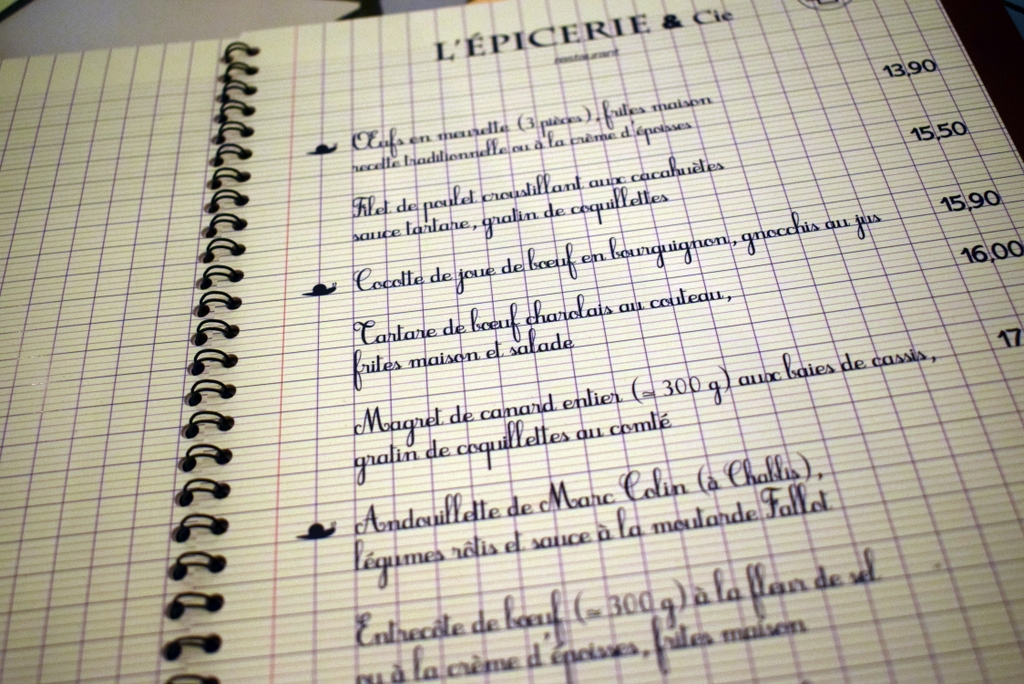 L'ÉPICERIE & Cie
restaurant
Œufs en meurette (3 pièces), frites maison 13,90
recette traditionnelle ou à la crème d'époisses
Filet de poulet croustillant aux cacahuètes 15,50
sauce tartare, gratin de coquillettes
Cocotte de joue de bœuf en bourguignon, gnocchis au jus 15,90
Tartare de bœuf charolais au couteau, 16,00
frites maison et salade
Magret de canard entier (≃ 300 g) aux baies de cassis, 17
gratin de coquillettes au comté
Andouillette de Marc Colin (à Chablis),
légumes rôtis et sauce à la moutarde Fallot
Entrecôte de bœuf (≃ 300 g) à la fleur de sel
ou à la crème d'époisses, frites maison